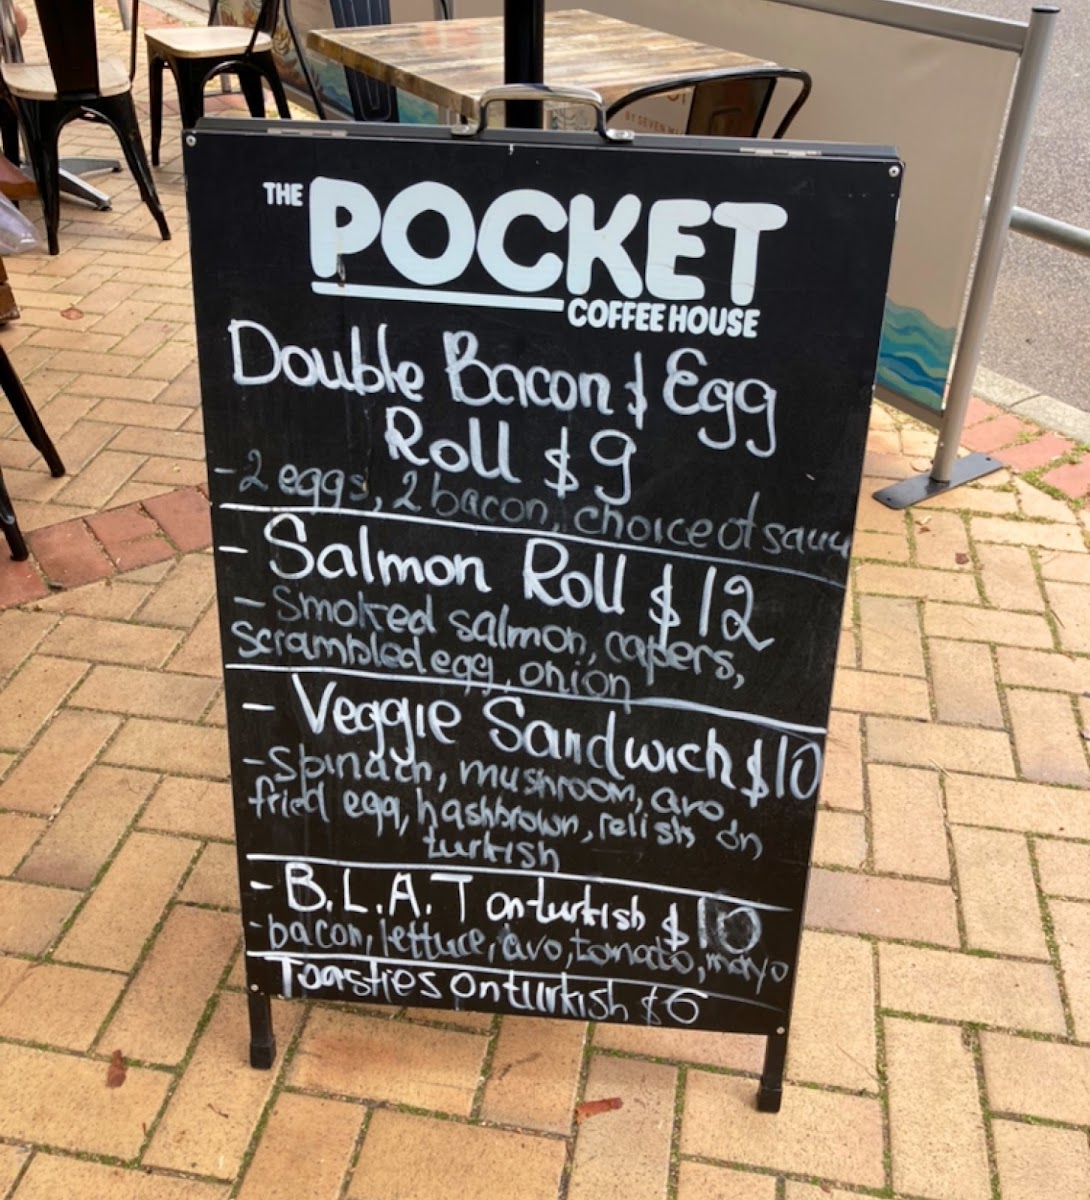 THE POCKET
COFFEE HOUSE
Double Bacon & Egg
Roll $9
- 2 eggs, 2 bacon, choice of sauce
- Salmon Roll $12
- Smoked salmon, capers,
scrambled egg, onion
- Veggie Sandwich $10
- Spinach, mushroom, avo
fried egg, hashbrown, relish on
turkish
- B.L.A.T on turkish $10
- bacon, lettuce, avo, tomato, mayo
Toasties on turkish $6
BY SEVEN